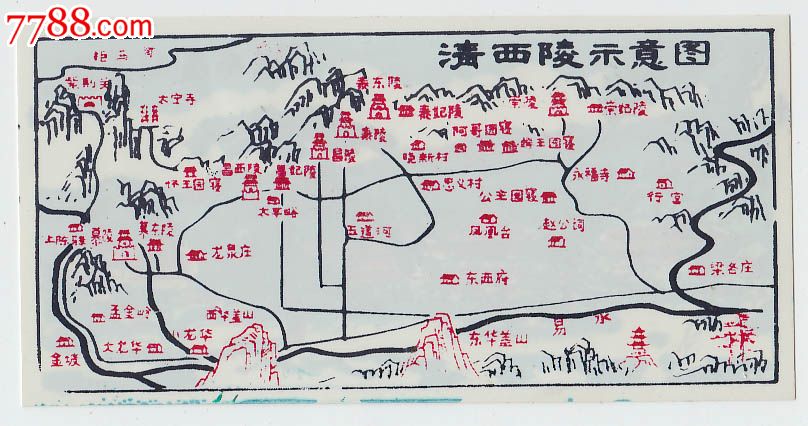 7788.com
清西陵示意图
拒马河
紫荆关
太宁寺
泰东陵
泰妃陵
泰陵
崇陵
崇妃陵
阿哥园寝
昌陵
晚新村
怀王园寝
昌西陵
昌妃陵
忠义村
永福寺
行宫
公主园寝
太平峪
五道河
凤凰台
赵公祠
上陈驿
慕陵
慕东陵
龙泉庄
东西府
梁各庄
孟金岭
西华盖山
小龙华
大龙华
金坡
东华盖山
易水